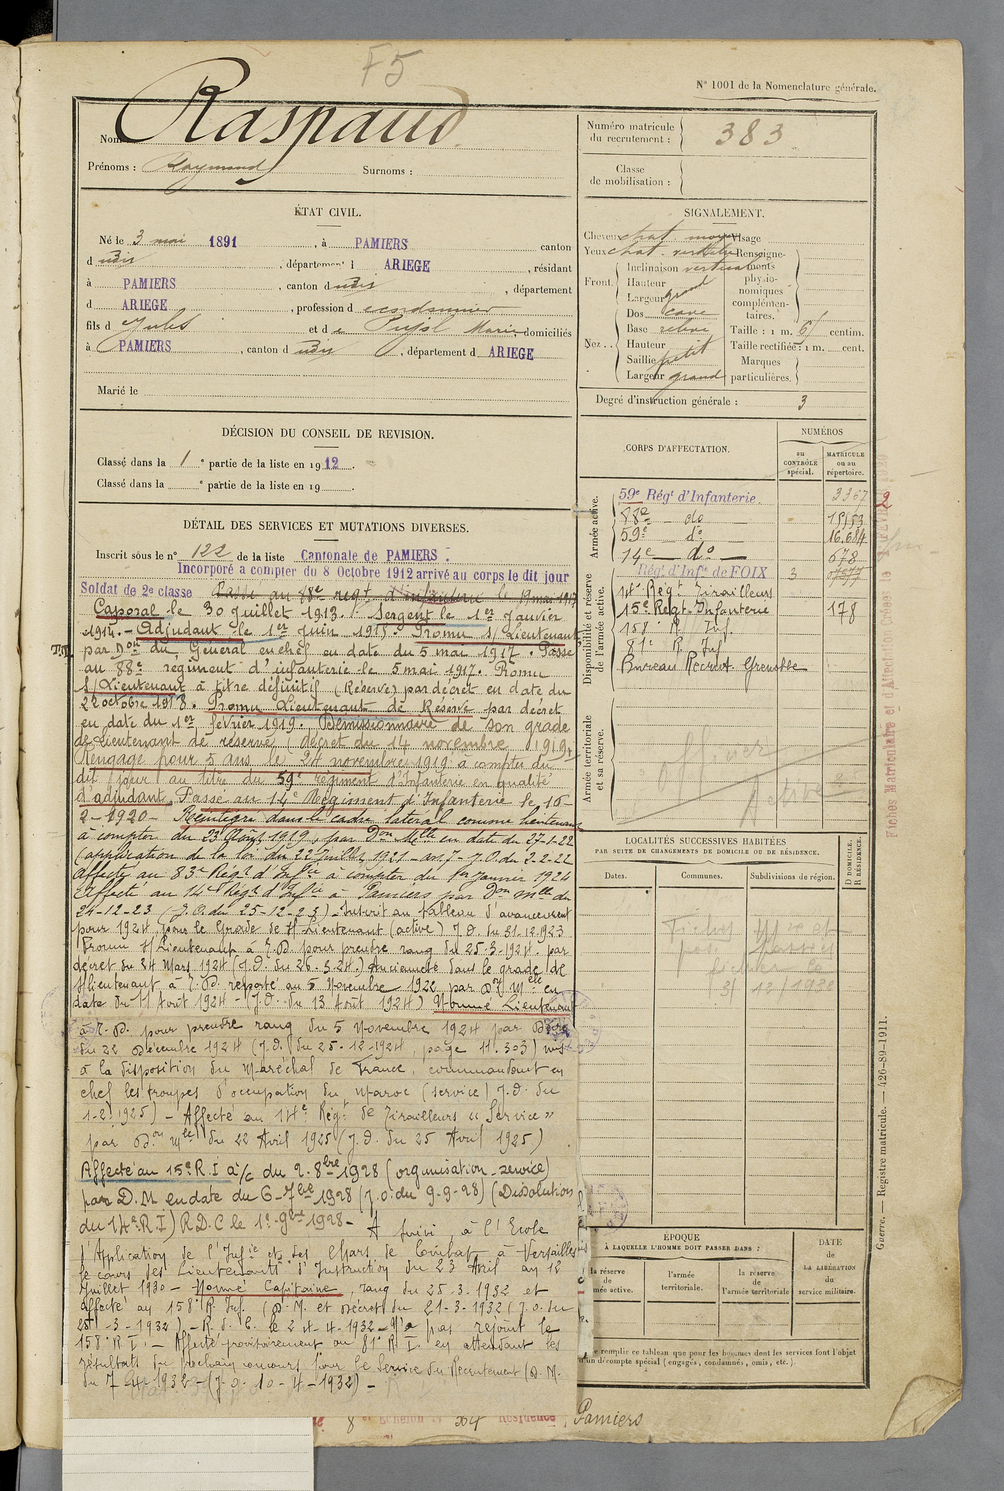 F5
N° 1001 de la Nomenclature générale.
Nom Raspaud
Prénoms : Raymond Surnoms :
Numéro matricule du recrutement : 383
Classe de mobilisation :
ÉTAT CIVIL.
Né le 3 mai 1891, à PAMIERS canton
d udit, département d ARIEGE, résidant
à PAMIERS, canton d udit, département
d ARIEGE, profession d cordonnier
fils d Jules et de Pujol Marie domiciliés
à PAMIERS, canton d udit, département d ARIEGE
Marié le
SIGNALEMENT.
Cheveux chat moyen Visage
Yeux chat. verdâtre Renseigne-
Front. Inclinaison verticale ments
Hauteur physio-
Largeur grand nomiques
Nez.. Dos cave complémen-
Base relevé taires.
Hauteur Taille : 1 m. 61 centim.
Saillie petit Taille rectifiée : 1 m. cent.
Largeur grand Marques particulières.
Degré d'instruction générale : 3
DÉCISION DU CONSEIL DE REVISION.
Classé dans la 1e partie de la liste en 1912.
Classé dans la e partie de la liste en 19
CORPS D'AFFECTATION.
NUMÉROS
au CONTRÔLE spécial.
MATRICULE ou au répertoire.
Armée active.
59e Régt d'Infanterie. 3367
88e do 15153
59e do 16.684
14e do 678
Disponibilité et réserve de l'armée active.
Régt d'Infie de FOIX 3
14e Régt Tirailleurs
15e Régt Infanterie 178
158e R. Inf.
81e R. Inf
Bureau Recrut Grenoble
Armée territoriale et sa réserve.
officier
active
DÉTAIL DES SERVICES ET MUTATIONS DIVERSES.
Inscrit sous le n° 122 de la liste Cantonale de PAMIERS.
Incorporé a compter du 8 Octobre 1912 arrivé au corps le dit jour
Soldat de 2e classe Passé au 88e régt d'infanterie le 19 mai 1917
Caporal le 30 Juillet 1913. Sergent le 1er Janvier
1914. - Adjudant le 1er Juin 1915. Promu S/Lieutenant
T.T. par Don du Général en chef en date du 5 mai 1917. Passé
au 88e régiment d'infanterie le 5 mai 1917. Promu
S/Lieutenant à titre définitif (Réserve) par décret en date du
22 octobre 1918. Promu Lieutenant de Réserve par décret
en date du 1er février 1919. Démissionnaire de son grade
de Lieutenant de réserve (décret du 14 novembre 1919)
Rengagé pour 5 ans le 24 novembre 1919 à compter du
dit jour au titre du 59e régiment d'Infanterie en qualité
d'adjudant. Passé au 14e Régiment d'Infanterie le 16-
2-1920 - Réintégré dans le cadre latéral comme lieutenant
à compter du 23 Août 1919, par Don Mlle en date du 27-1-22
(application de la loi du 22 Juillet 1921 - J.O. du 2-2-22
affecté au 83e Régt d'Infie à compter du 1er Janvier 1924
affecté au 14e Régt d'Infie à Pamiers par Don Mlle du
24-12-23 (J.O. du 25-12-23) - Inscrit au tableau d'avancement
pour 1924 pour le Grade de S/Lieutenant (active) J.O. du 31.12.1923
Promu S/Lieutenant à T.D. pour prendre rang du 25-3-1924 par
décret du 24 Mars 1924 (J.O. du 26-3-24.) Ancienneté dans le grade de
S/lieutenant à T.D. reporté au 5 Novembre 1922 par Don Mlle en
date du 11 Août 1924 - (J.O. du 13 Août 1924) Nommé Lieutenant
à T.D. pour prendre rang du 5 Novembre 1924 par Décret
du 22 Décembre 1924 (J.O. du 25-12-1924, page 11.303) mis
à la disposition du Maréchal de France, commandant en
chef les troupes d'occupation du Maroc (service) J.O. du
1-2-1925) - Affecté au 14e Régt de Tirailleurs « Service »
par Don Mlle du 22 Avril 1925 (J.O. du 25 Avril 1925)
Affecté au 15e R.I. à/c du 2-8bre 1928 (organisation-service)
par D.M en date du 6-7bre 1928 (J.O. du 9-9-28) (Dissolution
du 14e R.I) R.D.C le 1e-9bre 1928 - A suivi à l'Ecole
d'Application de l'Infie et des Chars de Combat à Versailles
le cours des Lieutenants d'Instruction du 23 Avril au 12
Juillet 1930 - Nommé Capitaine, rang du 25.3.1932 et
affecté au 158e R. Inf. (D.M. et Décret du 21-3-1932 (J.O. du
25-3-1932) - R.D.C. le 24-4-1932 - N'a pas rejoint le
158e R.I. - Affecté provisoirement au 81e R.I. en attendant les
résultats du prochain concours pour le Service du Recrutement (D.M.
du 7-4-1932 - (J.O. 10-4-1932) -
LOCALITÉS SUCCESSIVES HABITÉES
PAR SUITE DE CHANGEMENTS DE DOMICILE OU DE RÉSIDENCE.
Dates. Communes. Subdivisions de région. D DOMICILE. R RÉSIDENCE.
31 / 12 / 1930
ÉPOQUE
À LAQUELLE L'HOMME DOIT PASSER DANS :
la réserve de mée active.
l'armée territoriale.
la réserve de l'armée territoriale
DATE de LA LIBÉRATION du service militaire.
e remplir ce tableau que pour les hommes dont les services font l'objet
un décompte spécial (engagés, condamnés, omis, etc.).
Fiches Matriculaire et d'Affectation Créées le
Guerre. — Registre matricule. — 426-89-1911.
Echelon Résidence : Pamiers